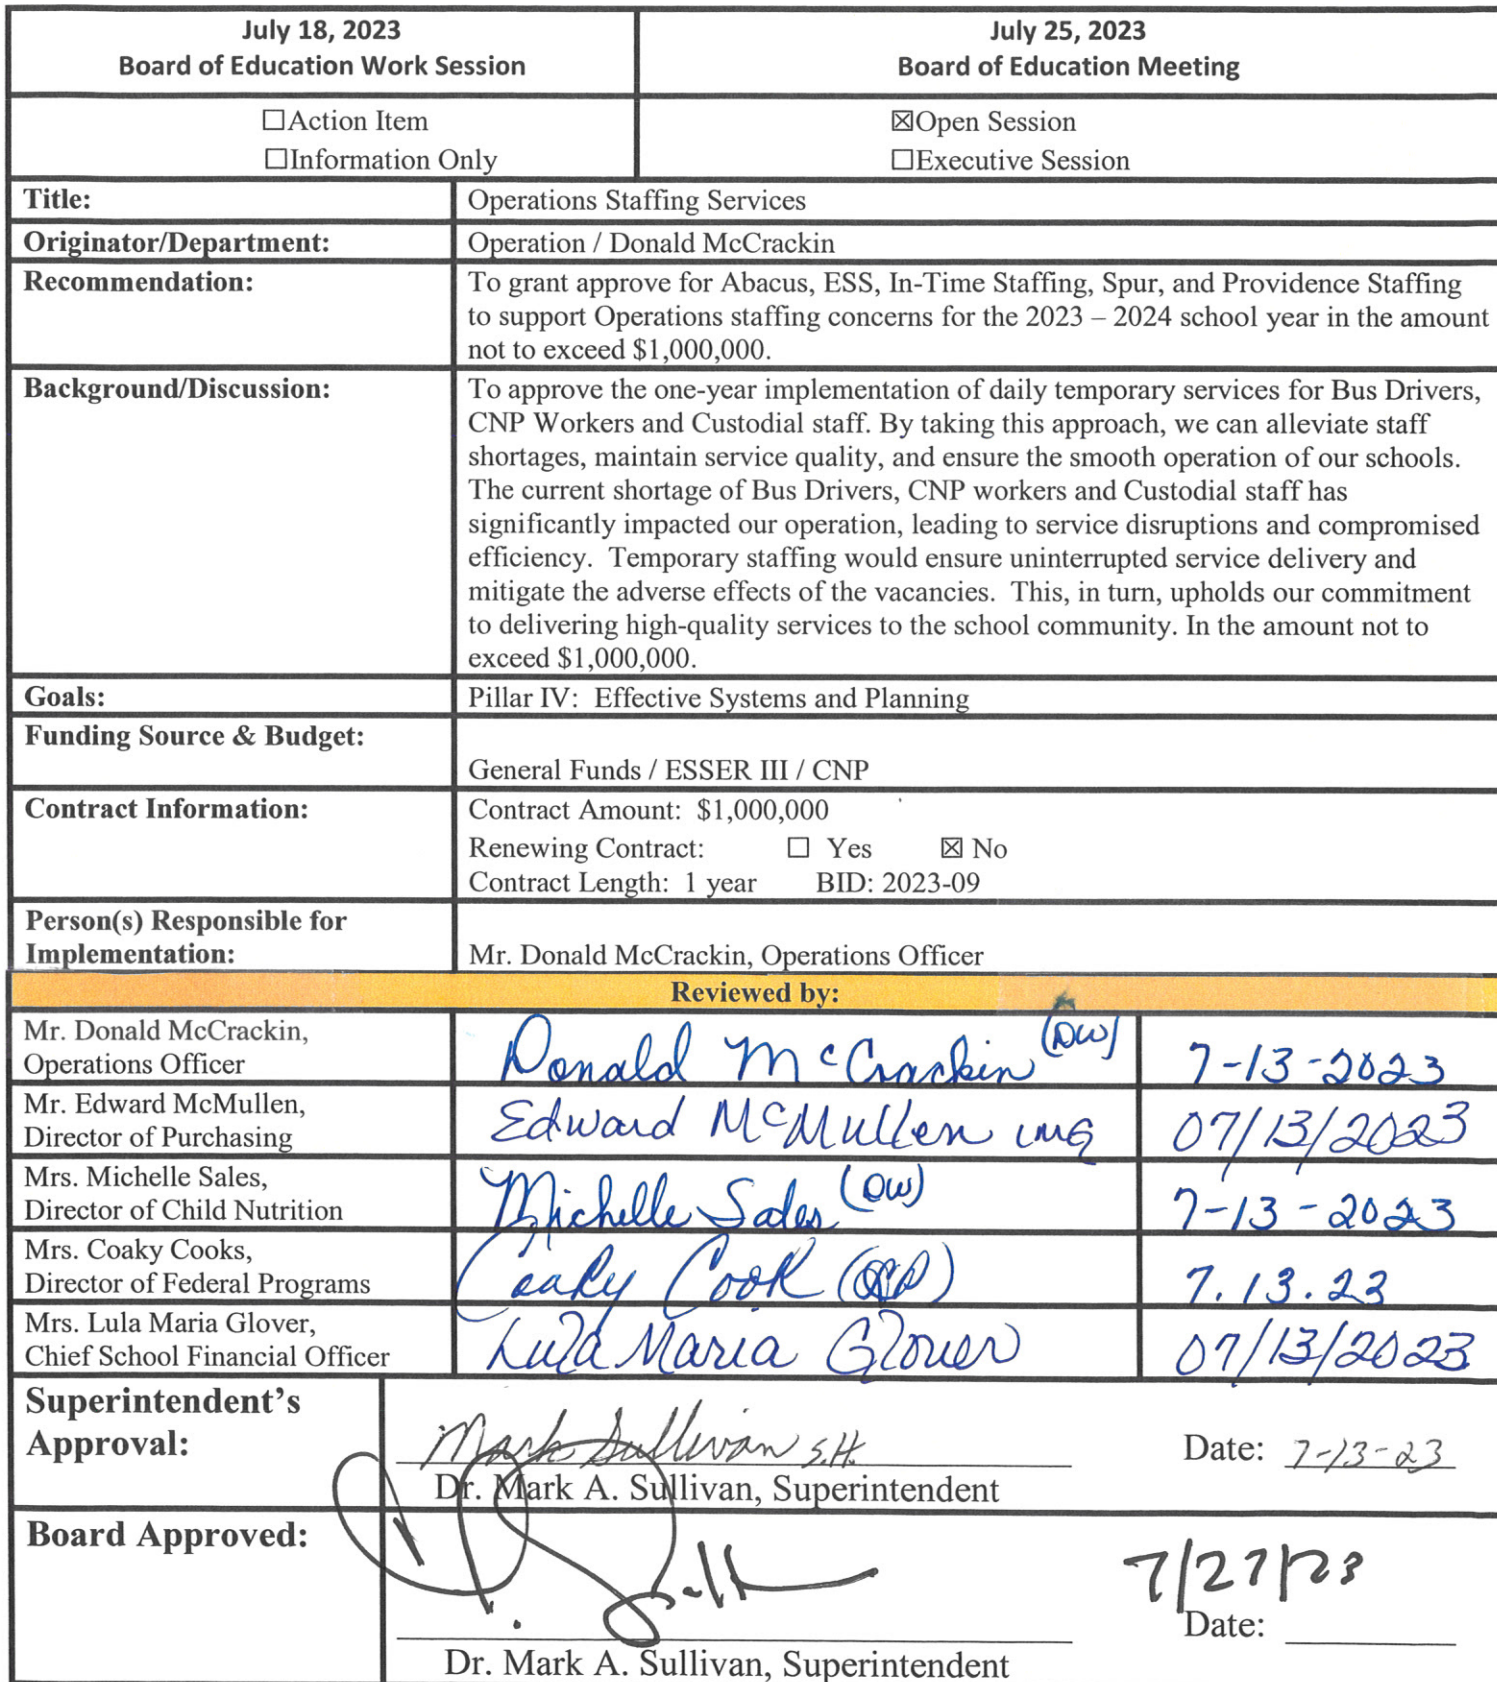 July 18, 2023
Board of Education Work Session
July 25, 2023
Board of Education Meeting
☐Action Item
☐Information Only
☒Open Session
☐Executive Session
Title:
Operations Staffing Services
Originator/Department:
Operation / Donald McCrackin
Recommendation:
To grant approve for Abacus, ESS, In-Time Staffing, Spur, and Providence Staffing
to support Operations staffing concerns for the 2023 – 2024 school year in the amount
not to exceed $1,000,000.
Background/Discussion:
To approve the one-year implementation of daily temporary services for Bus Drivers,
CNP Workers and Custodial staff. By taking this approach, we can alleviate staff
shortages, maintain service quality, and ensure the smooth operation of our schools.
The current shortage of Bus Drivers, CNP workers and Custodial staff has
significantly impacted our operation, leading to service disruptions and compromised
efficiency.  Temporary staffing would ensure uninterrupted service delivery and
mitigate the adverse effects of the vacancies.  This, in turn, upholds our commitment
to delivering high-quality services to the school community. In the amount not to
exceed $1,000,000.
Goals:
Pillar IV:  Effective Systems and Planning
Funding Source & Budget:
General Funds / ESSER III / CNP
Contract Information:
Contract Amount:  $1,000,000
Renewing Contract: ☐ Yes ☒ No
Contract Length:  1 year BID: 2023-09
Person(s) Responsible for
Implementation:
Mr. Donald McCrackin, Operations Officer
Reviewed by:
Mr. Donald McCrackin,
Operations Officer
Donald McCrackin (DW)
7-13-2023
Mr. Edward McMullen,
Director of Purchasing
Edward McMullen LMG
07/13/2023
Mrs. Michelle Sales,
Director of Child Nutrition
Michelle Sales (DW)
7-13-2023
Mrs. Coaky Cooks,
Director of Federal Programs
Coaky Cook
7.13.23
Mrs. Lula Maria Glover,
Chief School Financial Officer
Lula Maria Glover
07/13/2023
Superintendent's
Approval:
Mark Sullivan S.H.
Date: 7-13-23
Dr. Mark A. Sullivan, Superintendent
Board Approved:
7/27/23
Date:
Dr. Mark A. Sullivan, Superintendent